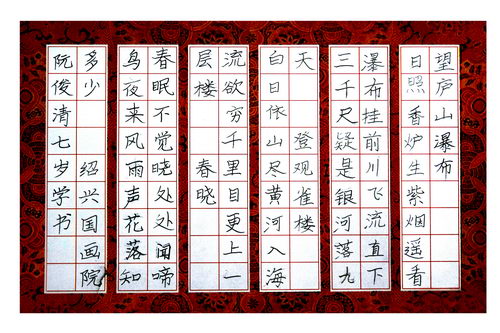 望庐山瀑布
日照香炉生紫烟遥看
瀑布挂前川飞流直下
三千尺疑是银河落九
天 登观雀楼
白日依山尽黄河入海
流欲穷千里目更上一
层楼 春晓
春眠不觉晓处处闻啼
鸟夜来风雨声花落知
多少 绍兴国画院
阮俊清七岁学书